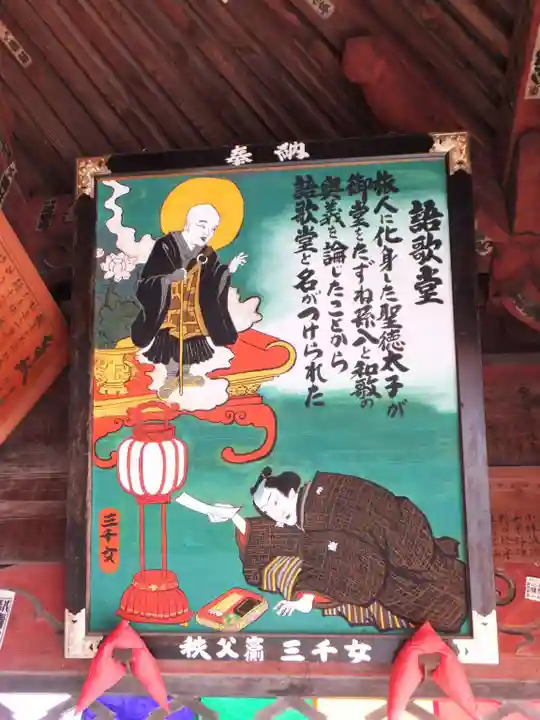 奉納
語歌堂
旅人に化身した聖徳太子が
御堂をたずね孫八と和歌の
奥義を論じたことから
語歌堂と名がつけられた
三千女
秩父 三千女